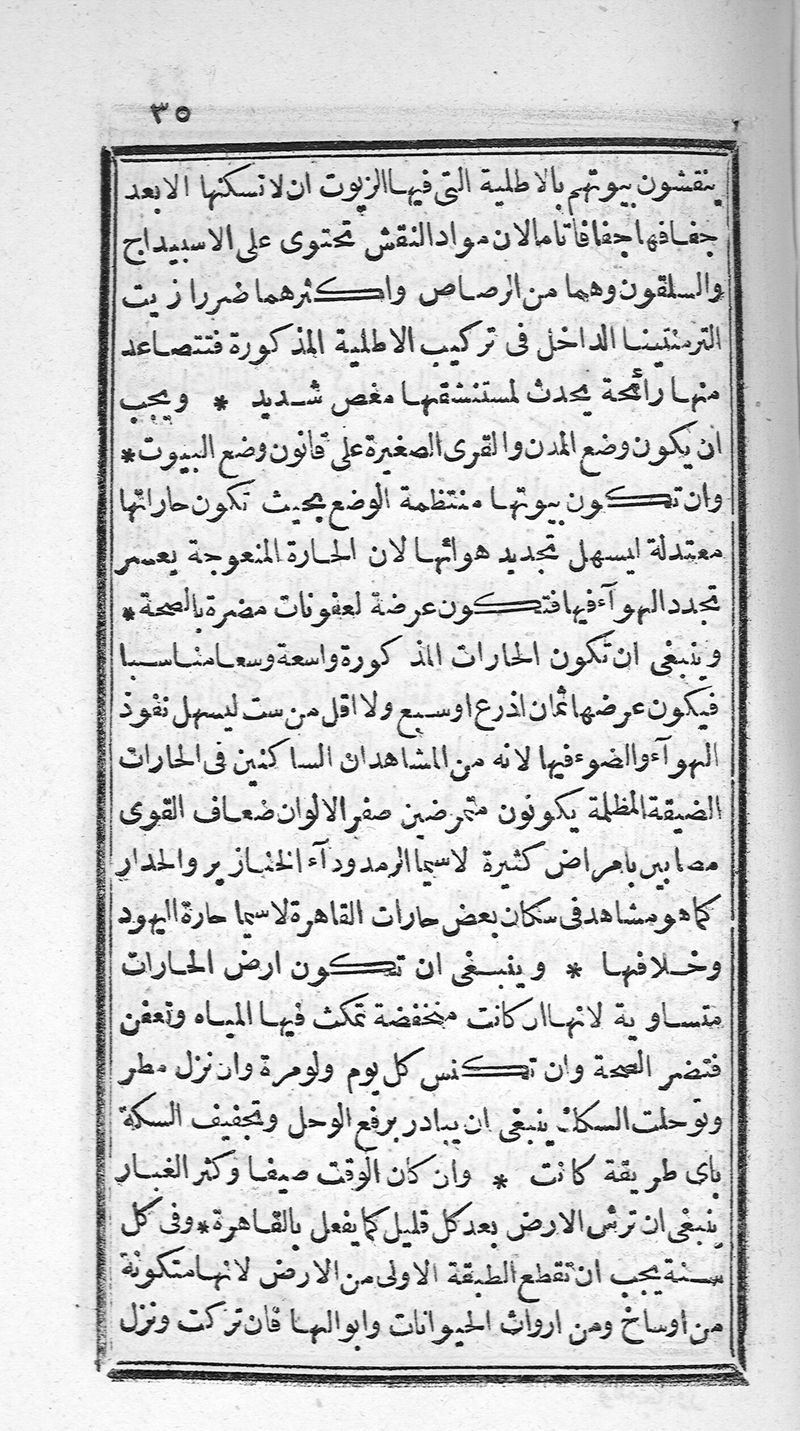 ٣٥
ينقشون بيوتهم بالاطلية التى فيها الزيوت ان لا تسكنها الابعد
جفافها جفافا تاما لان مواد النقش تحتوى على الاسبيداج
والسلقون وهما من الرصاص واكثرهما ضررا زيت
الترمنتينا الداخل فى تركيب الاطلية المذكورة فتتصاعد
منها رائحة يحدث لمستنشقها مغص شديد * ويجب
ان يكون وضع المدن والقرى الصغيرة على قانون وضع البيوت *
وان تكون بيوتها منتظمة الوضع بحيث تكون حاراتها
معتدلة ليسهل تجديد هوائها لان الحارة المنعوجة يعسر
تجدد الهوآء فيها فتكون عرضة لعفونات مضرة بالصحة *
وينبغى ان تكون الحارات المذكورة واسعة وسعا مناسبا
فيكون عرضها ثمان اذرع او سبع ولا اقل من ست ليسهل نفوذ
الهوآء والضوء فيها لانه من المشاهد ان الساكنين فى الحارات
الضيقة المظلمة يكونون متمرضين صفر الالوان ضعاف القوى
مصابين بامراض كثيرة لاسيما الرمد ودآء الخنازير والحدار
كما هو مشاهد فى سكان بعض حارات القاهرة لاسيما حارة اليهود
وخلافها * وينبغى ان تكون ارض الحارات
متساوية لانها ان كانت منخفضة تمكث فيها المياه وتعفن
فتضر الصحة وان تكنس كل يوم ولو مرة وان نزل مطر
وتوحلت السكك ينبغى ان يبادر برفع الوحل وتجفيف السكة
باى طريقة كانت * وان كان الوقت صيفا وكثر الغبار
ينبغى ان ترش الارض بعد كل قليل كما يفعل بالقاهرة * وفى كل
سنة يجب ان تقطع الطبقة الاولى من الارض لانها متكونة
من اوساخ ومن ارواث الحيوانات وابوالها فان تركت ونزل